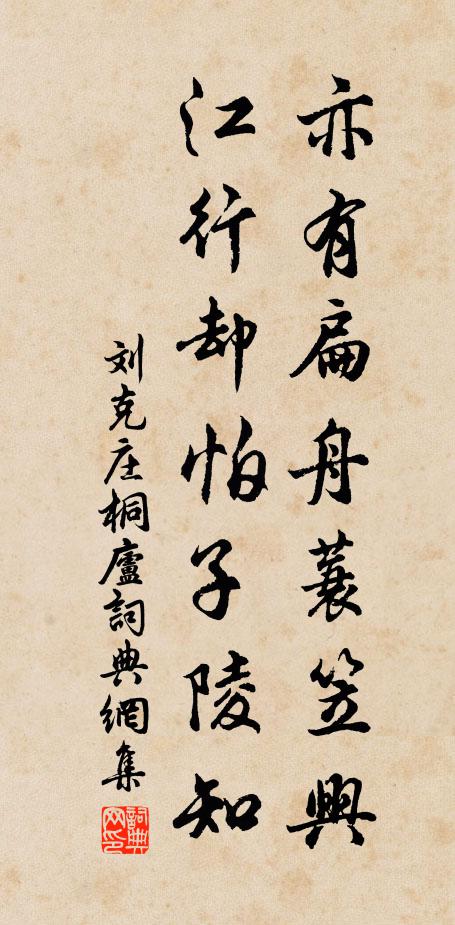 亦有扁舟蓑笠興
江行却怕子陵知
刘克庄桐廬詞典網集
詞典网印